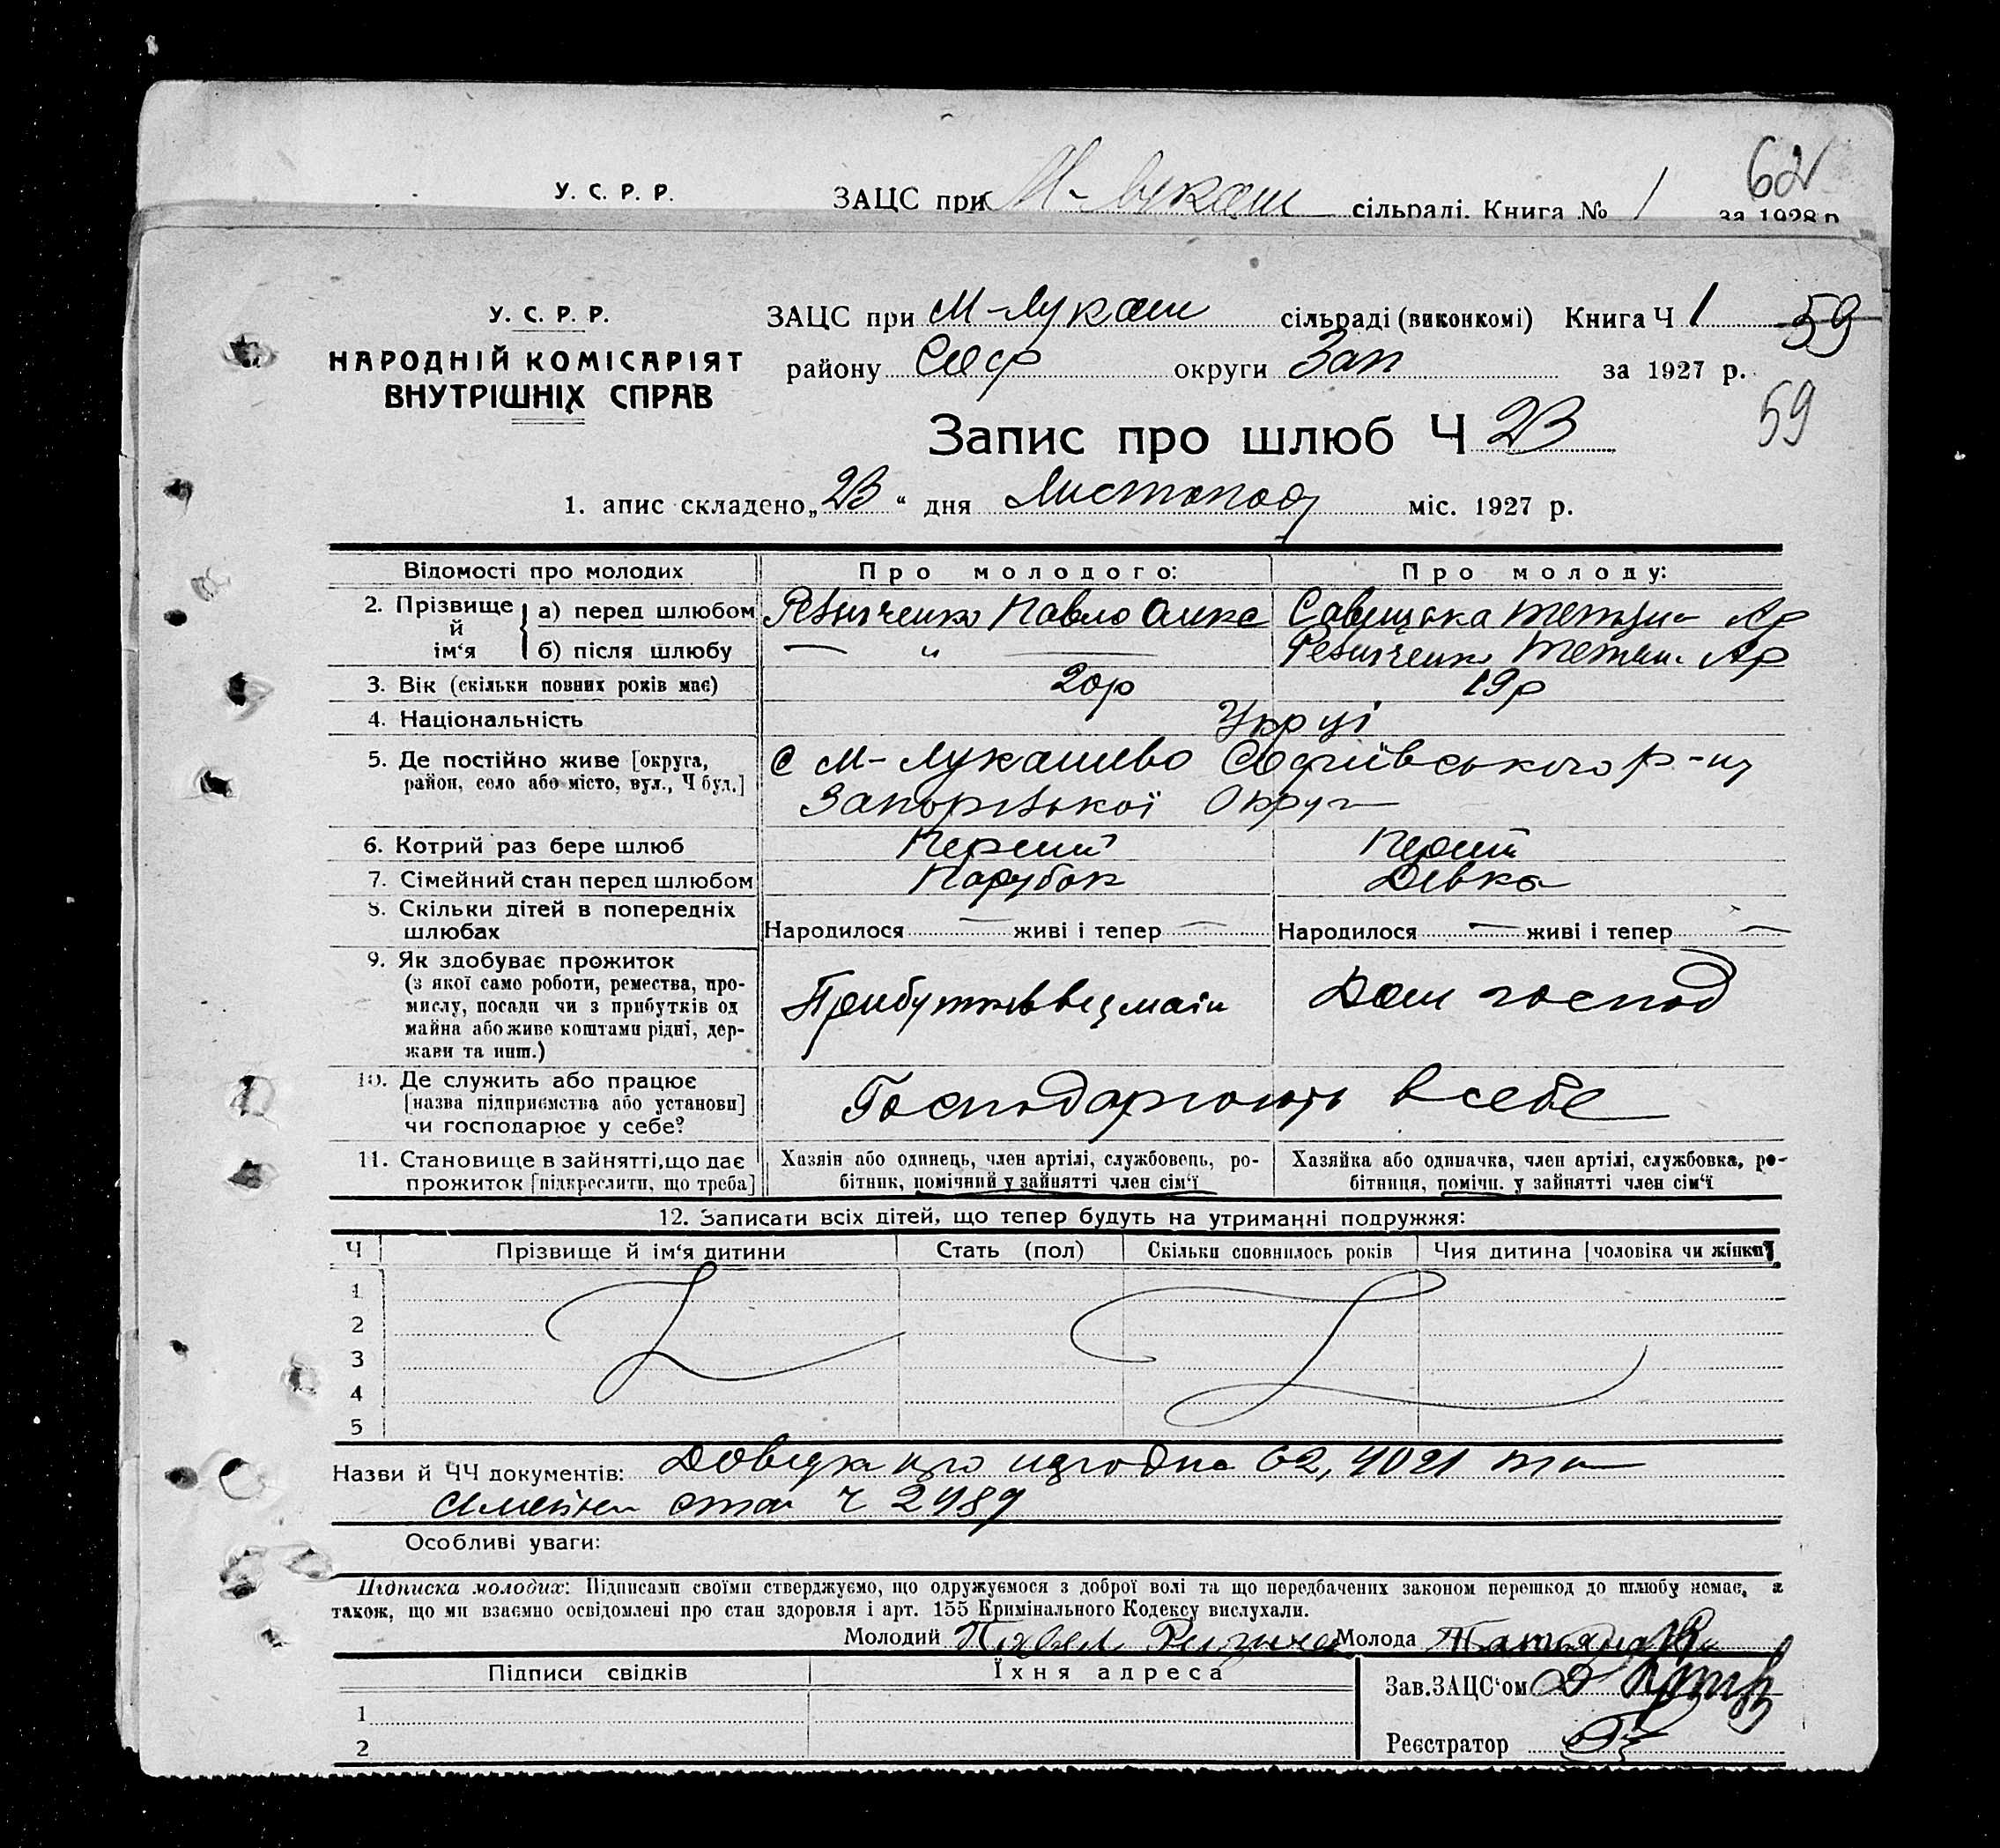 62
У. С. Р. Р. ЗАЦС при М-Лукаш сільраді. Книга № 1 за 1928 р.
У. С. Р. Р. ЗАЦС при М-Лукаш сільраді (виконкомі) Книга Ч 1 59
НАРОДНІЙ КОМІСАРІЯТ
ВНУТРІШНІХ СПРАВ
району Соф округи Зап за 1927 р.
59
Запис про шлюб Ч 23
1. апис складено „23“ дня Листопад міс. 1927 р.
Відомості про молодих Про молодого: Про молоду:
2. Прізвище й ім‘я а) перед шлюбом Резниченко Павло Олекс Савицька Тетяна Ар
б) після шлюбу — „ — Резниченко Тетян. Ар
3. Вік (скільки повних років має) 20р 19р
4. Національність Укрці
5. Де постійно живе [округа, С М-Лукашево Софиївського р-ну
район, село або місто, вул., Ч буд.] Запорізької Округи
6. Котрий раз бере шлюб Перший Перший
7. Сімейний стан перед шлюбом Парубок Дівка
8. Скільки дітей в попередніх
шлюбах Народилося — живі і тепер — Народилося — живі і тепер —
9. Як здобуває прожиток
(з якої само роботи, ремества, про-
мислу, посади чи з прибутків од
майна або живе коштами рідні, дер-
жави та инш.)
Прибутків від маєн Дом господ
10. Де служить або працює
[назва підприємства або установи]
чи господарює у себе?
Господарюють в себе
11. Становище в зайнятті, що дає Хазяїн або одинець, член артілі, службовець, ро- Хазяйка або одиначка, член артілі, службовка, ро-
прожиток [підкреслити, що треба] бітник, помічний у зайнятті член сім‘ї бітниця, помічн. у зайнятті член сім‘ї
12. Записати всіх дітей, що тепер будуть на утриманні подружжя:
Ч Прізвище й ім‘я дитини Стать (пол) Скільки сповнилось років Чия дитина [чоловіка чи жінки]
1
2
3
4
5
Назви й ЧЧ документів: Довідка про
стан ч 2989
Особливі уваги:
Підписка молодих: Підписами своїми стверджуємо, що одружуємося з доброї волі та що передбачених законом перешкод до шлюбу немає, а
також, що ми взаємно освідомлені про стан здоровля і арт. 155 Кримінального Кодексу вислухали.
Молодий Павел Молода Татьяна
Підписи свідків Їхня адреса Зав. ЗАЦС‘ом
1
2 Реєстратор